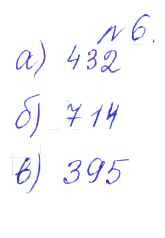 № 6.
а) 432
б) 714
в) 395